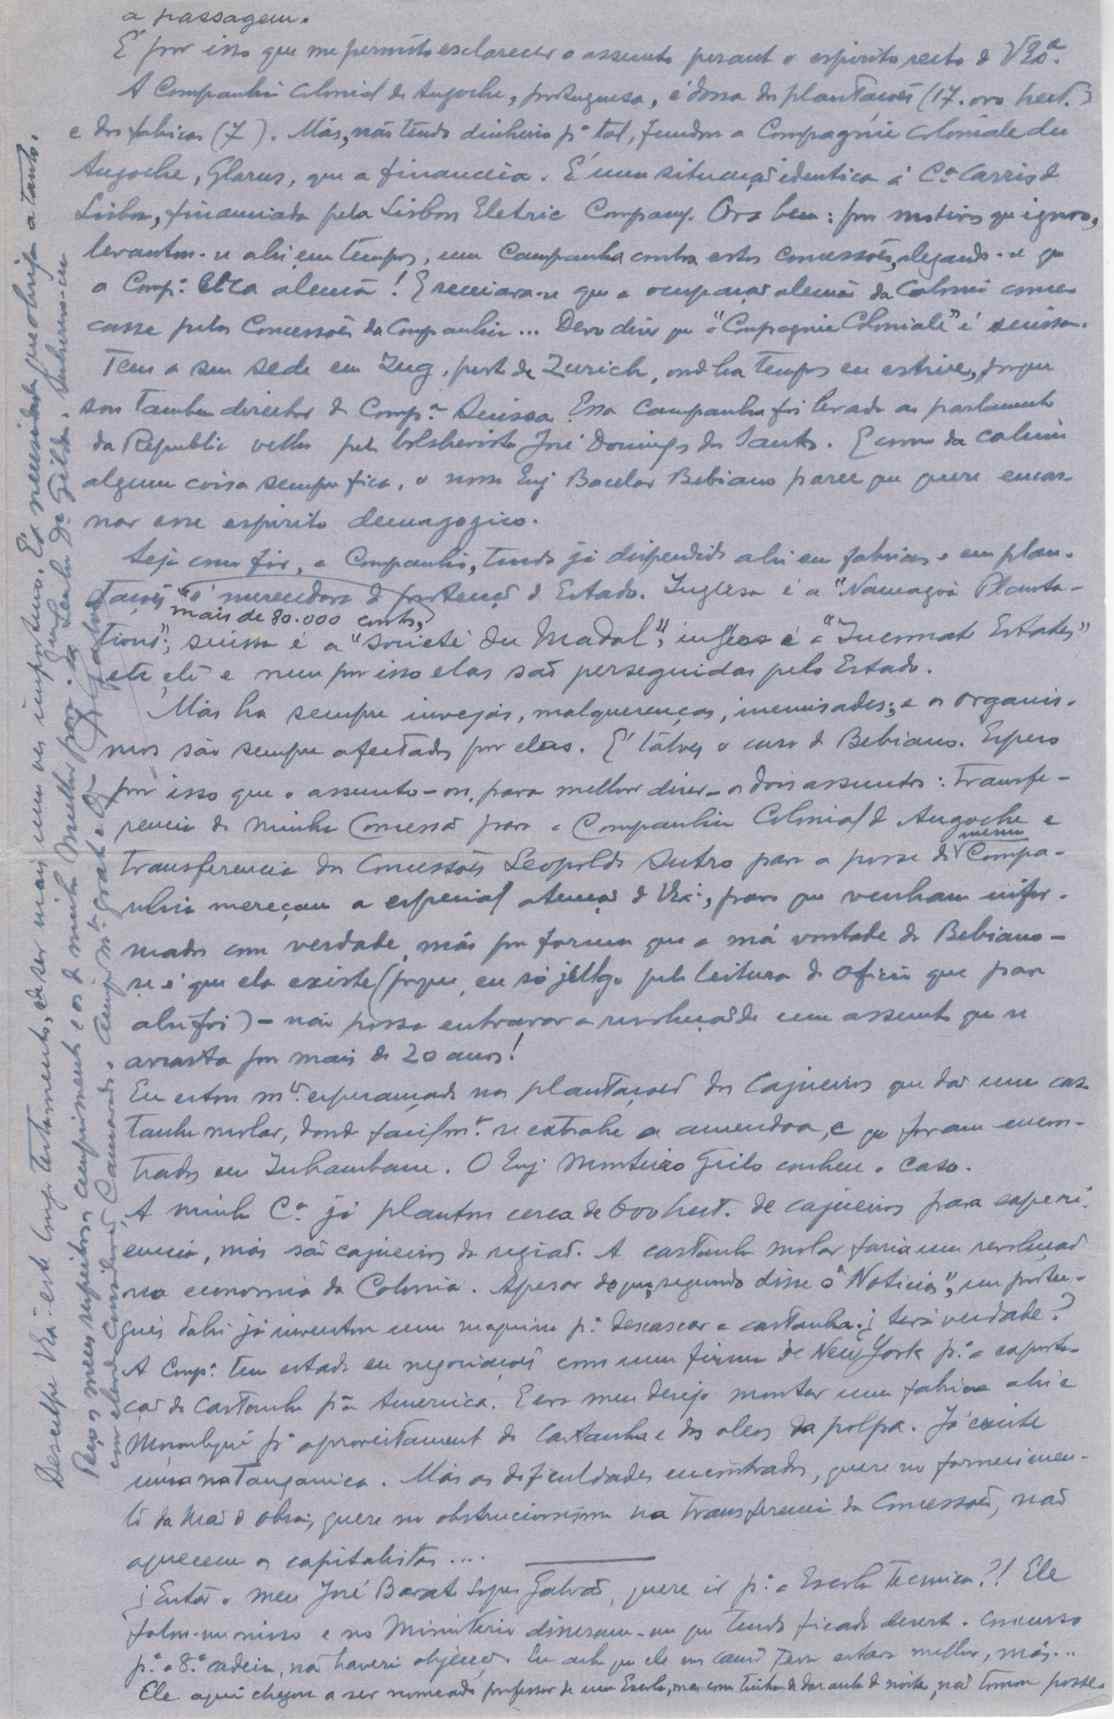 a passagem.
É por isso que me permito esclarecer o assunto perante o espirito recto de V. Exª.
A Companhia Colonial de Angoche, portuguesa, é dona das plantações (17.000 hect.)
e das fabricas (7). Más, não tendo dinheiro pª tal, fundou a Compagnie Coloniale du
Angoche, Glarus, que a financeia. É uma situação identica á Cª Carris de
Lisboa, financiada pela Lisbon Eletric Company. Ora bem: por motivos que ignoro,
levantou-se ahi, em tempos, uma Campanha contra estas concessões, alegando-se que
a Compª era alemã! E receiava-se que a ocupação alemã da Colonia come-
casse pelas Concessões da Companhia... Devo dizer que a "Compagnie Coloniale" é suissa.
Tem a sua sede em Zug, perto de Zurich, onde ha tempos eu estive, porque
sou tambem director da Compª Suissa. Essa campanha foi levada ao parlamento
da Republica velha pelo bolshevista José Domingos dos Santos. E como da calunia
alguma coisa sempre fica, o nosso Eng Bacelar Bebiano parece que quere encar-
nar esse espirito demagogico.
Seja como fôr, a Companhia, tendo já dispendido ahi em fabricas e em plan-
tações mais de 80.000 contos, é merecedora da protecção do Estado. Inglesa é a "Namagoa Planta-
tions"; suissa é a "Societé du Madal"; inglesa é a "Incomati Estates"
etc etc e nem por isso elas são perseguidas pelo Estado.
Más ha sempre invejas, malquerenças, inimisades; e os organis-
mos são sempre afectados por elas. É talvez o caso de Bebiano. Espero
por isso que o assunto - ou, para melhor dizer - os dois assuntos: transfe-
rencia da minha Concessão para a Companhia Colonial de Angoche e
transferencia das Concessões Leopoldo Sutro para a posse da mesma Compa-
nhia mereçam a especial atenção de V. Exª, para que venham infor-
mados com verdade, más por forma que a má vontade do Bebiano -
se é que ela existe (porque, eu só julgo pela leitura do oficio que para
ahi foi) - não possa entravar a resolução de um assunto que se
arrasta por mais de 20 anos!
Eu estou mtº esperançado nas plantações dos Cajueiros que dão uma cas-
tanha molar, donde facilmtª se extrahe a amendoa, e que foram encon-
trados em Inhambane. O Eng Monteiro Grilo conhece o caso.
A minha Cª já plantou cerca de 600 hect. de cajueiros para experi-
encia, más são cajueiros da região. A castanha molar faria uma revolução
na economia da Colonia. Apesar de que, segundo disse o "Noticias", um portu-
guês dahi já inventou uma maquina pª descascar a castanha. ¿ Será verdade?
A Compª tem estado em negociações com uma firma de New York pª a exporta-
ção da castanha pª a America. E era meu desejo montar uma fabrica ahi e
Moçambique pª aproveitamento da Castanha e dos oleos da polpa. Já existe
uma na Tanganica. Más as dificuldades encontradas, quere no fornecimen-
to da Mão d'obra, quere no obstrucionismo na transferencia da Concessão, não
aquecem os capitalistas....
¿ Então o meu José Barata Lopes Galvão, quere ir pª a Escola Tecnica?! Ele
falou-me nisso e no Ministerio disseram-me que tendo ficado deserto o concurso
pª a 8ª cadeira, não haveria objecção. Eu acho que ele em casa devia estar melhor, más...
Ele aqui chegou a ser nomeado professor de uma Escola, mas como tinha de dar aula de noite, não tomou posse.
Desculpe V. Exª este importunamento, de ser mais uma vez importuno. É a necessidade que obriga a tanto.
Peço meus respeitosos cumprimentos e os de minha Mulher para a Senhora Dª Gilda. Subscrevo-me
com elevada consideração Camarada e Amigo mtº grato e Obº